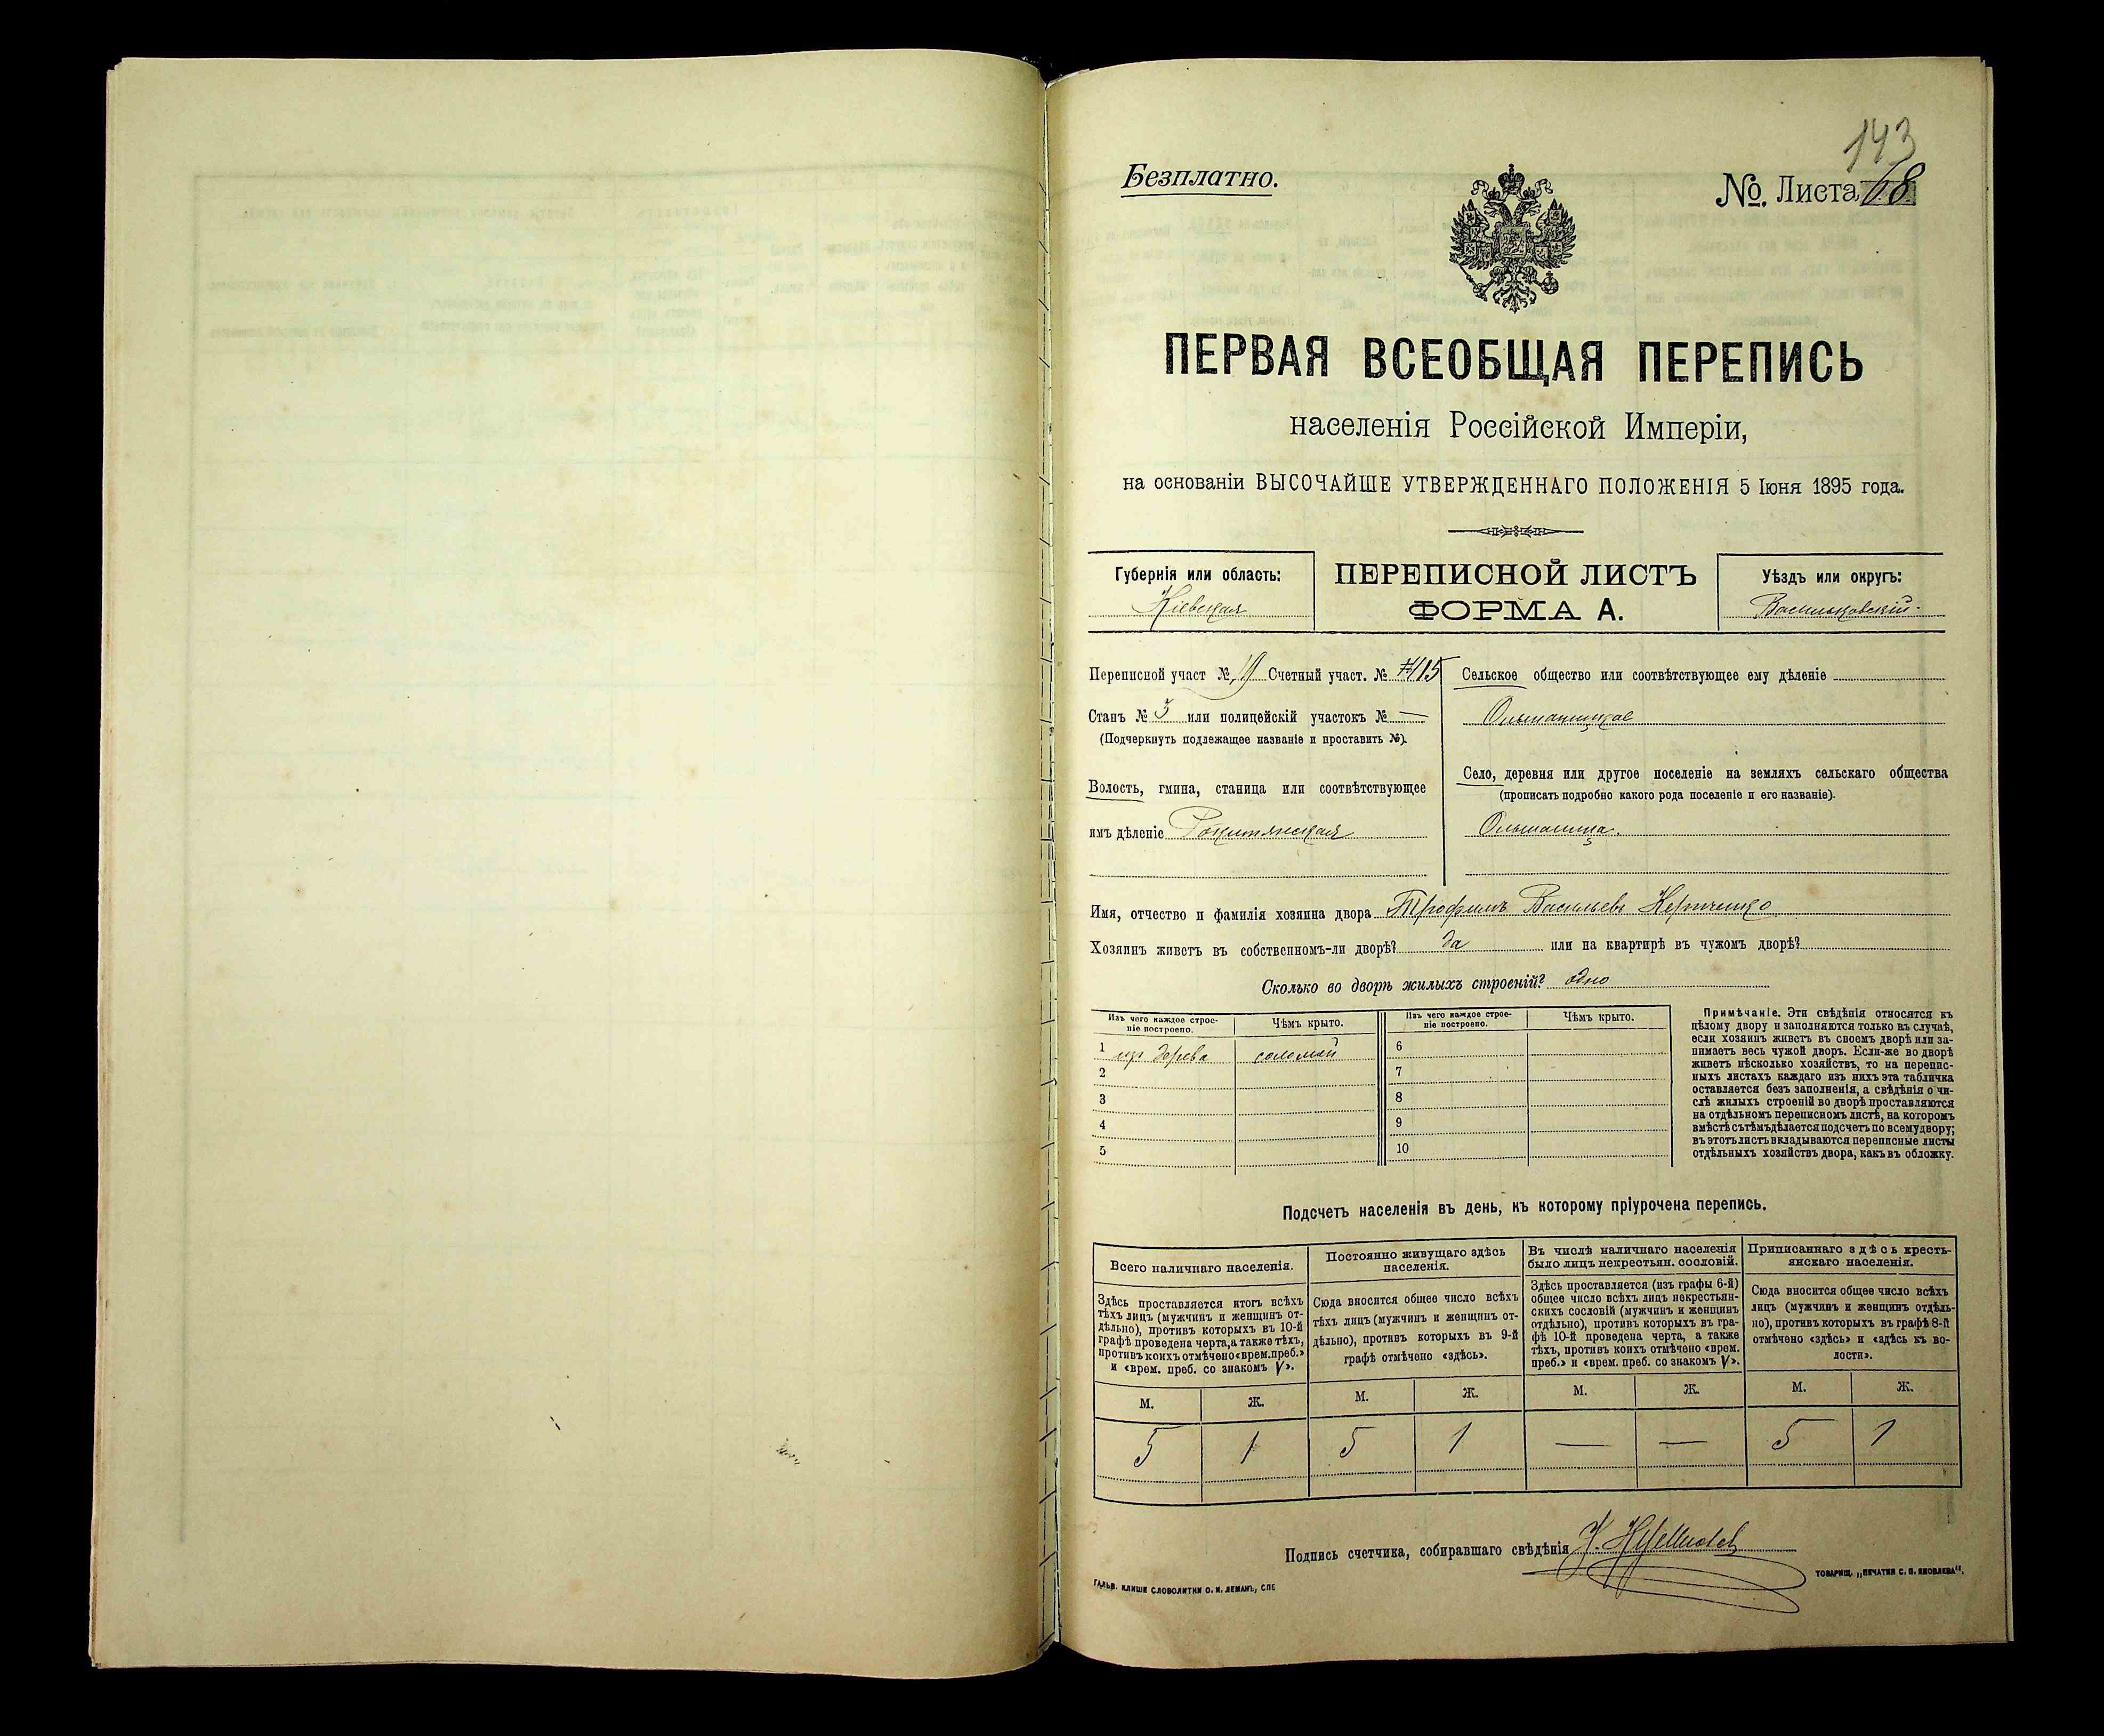 143
Безплатно.
№. Листа 68
ПЕРВАЯ ВСЕОБЩАЯ ПЕРЕПИСЬ
населенія Россійской Имперіи,
на основаніи ВЫСОЧАЙШЕ УТВЕРЖДЕННАГО ПОЛОЖЕНІЯ 5 Іюня 1895 года.
Губернія или область:
Кіевская
ПЕРЕПИСНОЙ ЛИСТЪ
ФОРМА А.
Уѣздъ или округъ:
Васильковскій
Переписной участ № 19 Счетный участ. № 15
Станъ № 3 или полицейскій участокъ № —
(Подчеркнуть подлежащее названіе и проставить №).
Волость, гмина, станица или соотвѣтствующее
имъ дѣленіе Рокитянская
Сельское общество или соотвѣтствующее ему дѣленіе
Ольшаницкое
Село, деревня или другое поселеніе на земляхъ сельскаго общества
(прописать подробно какого рода поселеніе и его названіе).
Ольшаница.
Имя, отчество и фамилія хозяина двора Трофимъ Васильевъ
Хозяинъ живетъ въ собственномъ-ли дворѣ? да или на квартирѣ въ чужомъ дворѣ?
Сколько во дворѣ жилыхъ строеній? одно
Изъ чего каждое строе-
ніе построено.
Чѣмъ крыто.
Изъ чего каждое строе-
ніе построено.
Чѣмъ крыто.
1 изъ дерева соломой 6
2 7
3 8
4 9
5 10
Примѣчаніе. Эти свѣдѣнія относятся къ
цѣлому двору и заполняются только въ случаѣ,
если хозяинъ живетъ въ своемъ дворѣ или за-
нимаетъ весь чужой дворъ. Если-же во дворѣ
живетъ нѣсколько хозяйствъ, то на перепис-
ныхъ листахъ каждаго изъ нихъ эта табличка
оставляется безъ заполненія, а свѣдѣнія о чи-
слѣ жилыхъ строеній во дворѣ проставляются
на отдѣльномъ переписномъ листѣ, на которомъ
вмѣстѣ съ тѣмъ дѣлается подсчетъ по всему двору;
въ этотъ листъ вкладываются переписные листы
отдѣльныхъ хозяйствъ двора, какъ въ обложку.
Подсчетъ населенія въ день, къ которому пріурочена перепись.
Всего наличнаго населенія.
Здѣсь проставляется итогъ всѣхъ
тѣхъ лицъ (мужчинъ и женщинъ от-
дѣльно), противъ которыхъ въ 10-й
графѣ проведена черта, а также тѣхъ,
противъ коихъ отмѣчено «врем. преб.»
и «врем. преб. со знакомъ V».
Постоянно живущаго здѣсь
населенія.
Сюда вносится общее число всѣхъ
тѣхъ лицъ (мужчинъ и женщинъ от-
дѣльно), противъ которыхъ въ 9-й
графѣ отмѣчено «здѣсь».
Въ числѣ наличнаго населенія
было лицъ некрестьян. сословій.
Здѣсь проставляется (изъ графы 6-й)
общее число всѣхъ лицъ некрестьян-
скихъ сословій (мужчинъ и женщинъ
отдѣльно), противъ которыхъ въ гра-
фѣ 10-й проведена черта, а также
тѣхъ, противъ коихъ отмѣчено «врем.
преб.» и «врем. преб. со знакомъ V».
Приписаннаго здѣсь кресть-
янскаго населенія.
Сюда вносится общее число всѣхъ
лицъ (мужчинъ и женщинъ отдѣль-
но), противъ которыхъ въ графѣ 8-й
отмѣчено «здѣсь» и «здѣсь къ во-
лости».
М. Ж. М. Ж. М. Ж. М. Ж.
5 1 5 1 — — 5 1
Подпись счетчика, собиравшаго свѣдѣнія
ГАЛЬВ. КЛИШЕ СЛОВОЛИТНИ О. И. ЛЕМАНЪ, СПБ
ТОВАРИЩ. „ПЕЧАТНЯ С. П. ЯКОВЛЕВА“.